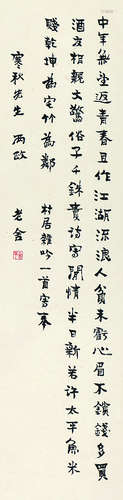 中年無望返青春且作江湖流浪人貧未虧心眉不鎖錢多買
酒友相親文驚俗子千銖貴詩寫閒情半日新若許太平魚米
賤乾坤為宅竹為鄰 村居雜吟一首書奉
寒秋先生 兩政 老舍